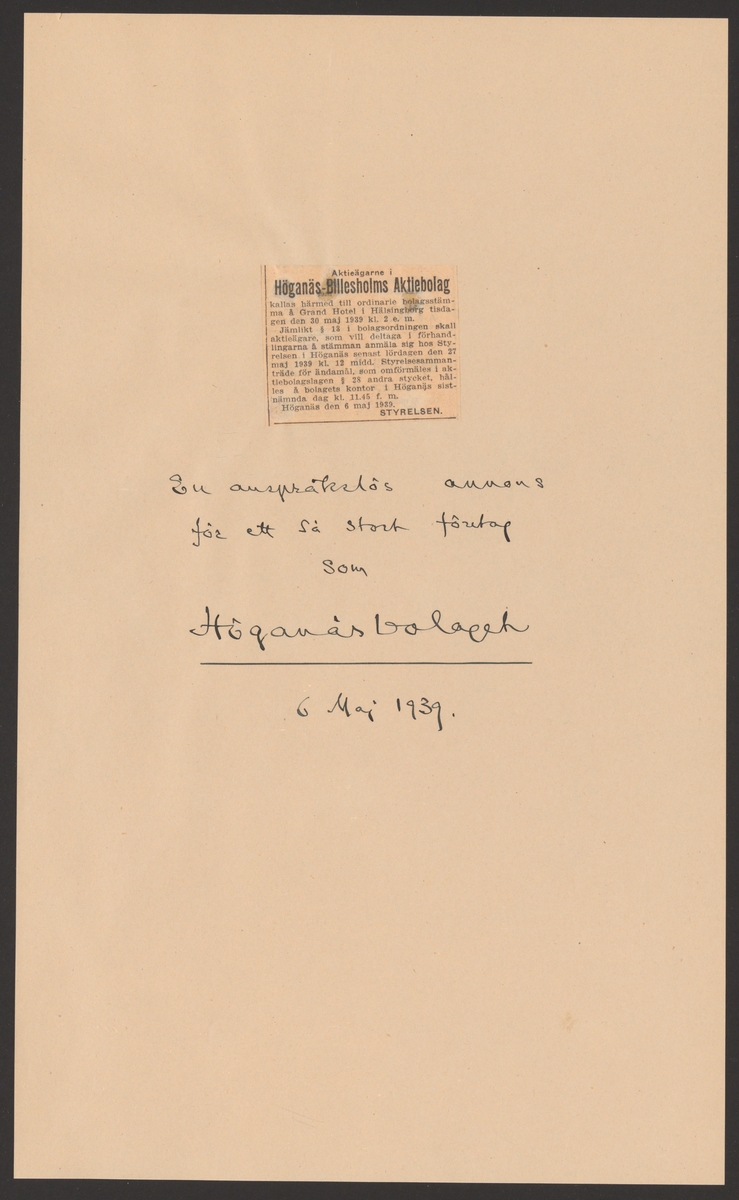 Aktieägarne i
Höganäs-Billesholms Aktiebolag
kallas härmed till ordinarie bolagsstäm-
ma å Grand Hotel i Hälsingborg tisda-
gen den 30 maj 1939 kl. 2 e. m.
Jämlikt § 13 i bolagsordningen skall
aktieägare, som vill deltaga i förhand-
lingarna å stämman anmäla sig hos Sty-
relsen i Höganäs senast lördagen den 27
maj 1939 kl. 12 midd. Styrelsesamman-
träde för ändamål, som omförmäles i ak-
tiebolagslagen § 28 andra stycket, hål-
les å bolagets kontor i Höganäs sist-
nämnda dag kl. 11.45 f. m.
Höganäs den 6 maj 1939.
STYRELSEN.
En anspråkslös annons
för ett så stort företag
som
Höganäsbolaget
6 Maj 1939.